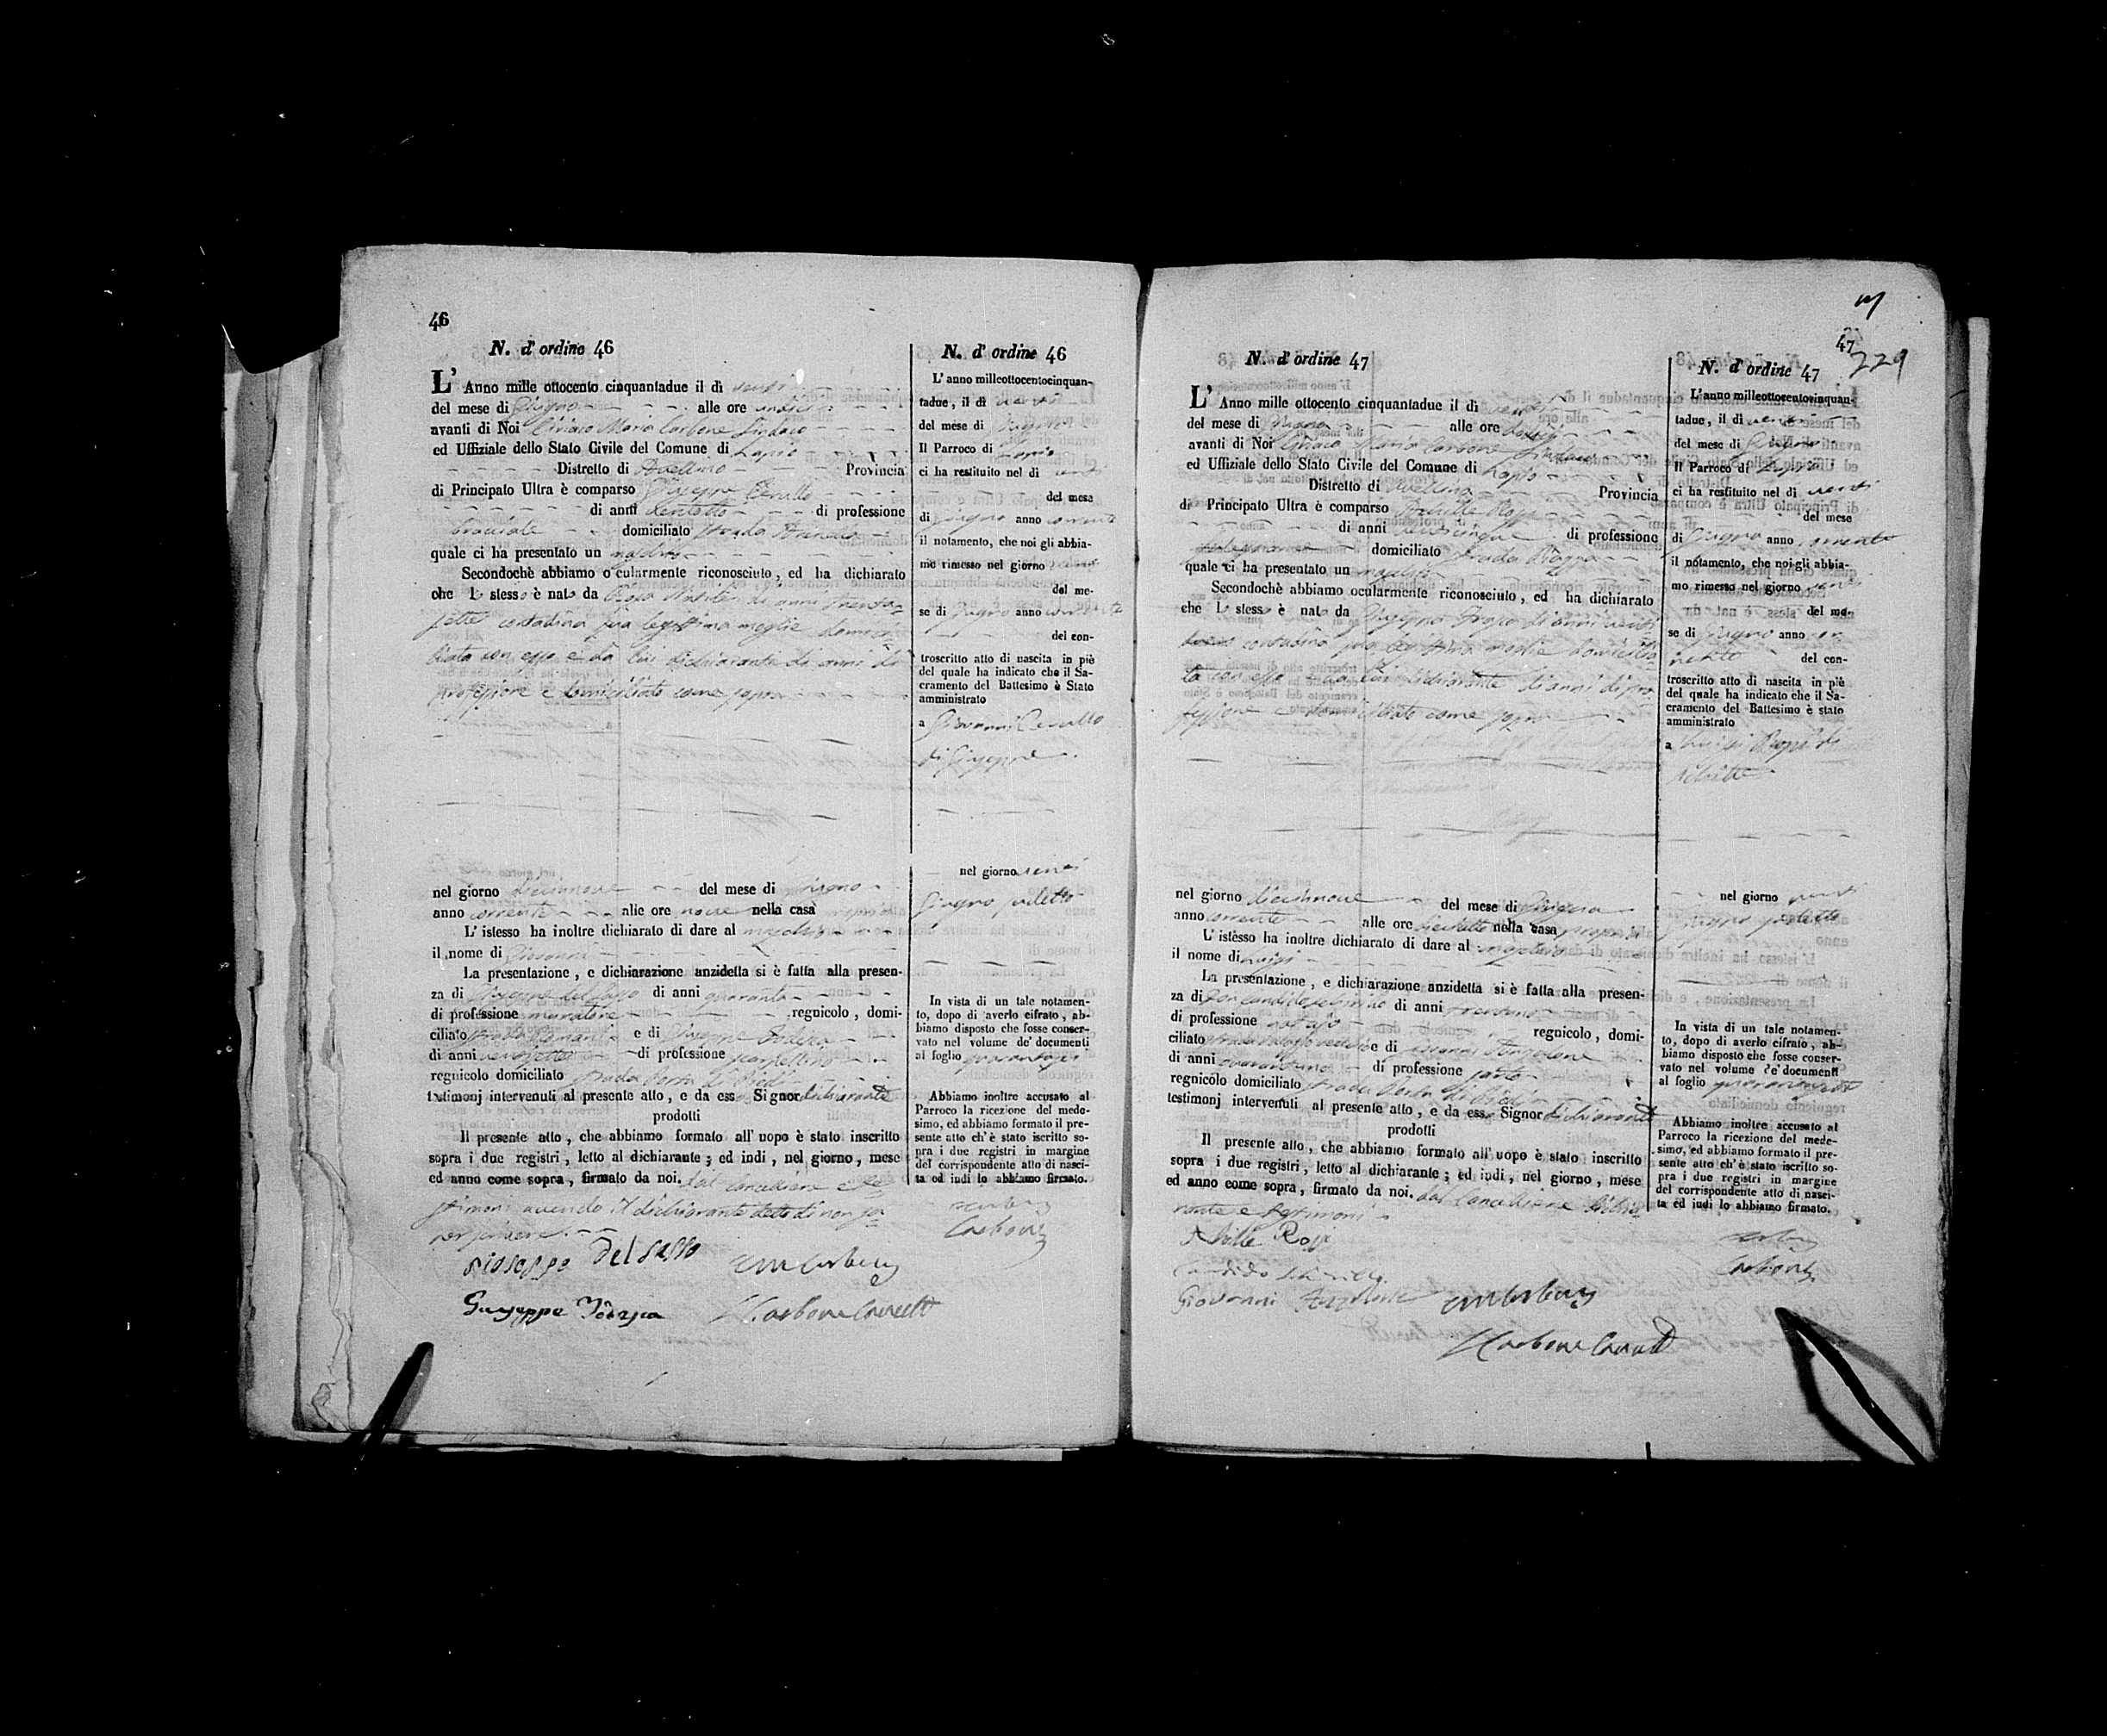 46
N. d' ordine 46
L' Anno mille ottocento cinquantadue il dì venti
del mese di Giugno alle ore undici
avanti di Noi Ciriaco Maria Carbone Sindaco
ed Uffiziale dello Stato Civile del Comune di Lapio
Distretto di Avellino Provincia
di Principato Ultra è comparso Giuseppe Cerullo
di anni di professione
bracciale domiciliato strada
quale ci ha presentato un maschio
Secondochè abbiamo ocularmente riconosciuto, ed ha dichiarato
che lo stesso è nato da Rosa di anni trenta-
sette contadina sua legittima moglie domici-
liata con esso e da lui dichiarante di anni di
professione e domiciliato come sopra
nel giorno diecinnove del mese di Giugno
anno corrente alle ore nove nella casa
L' istesso ha inoltre dichiarato di dare al maschio
il nome di Giovanni
La presentazione, e dichiarazione anzidetta si è fatta alla presen-
za di Giuseppe del Sasso di anni quaranta
di professione muratore regnicolo, domi-
ciliato strada e di Giuseppe
di anni di professione scarpellino
regnicolo domiciliato strada Porta di
testimonj intervenuti al presente atto, e da esso Signor dichiarante
prodotti
Il presente atto, che abbiamo formato all' uopo è stato inscritto
sopra i due registri, letto al dichiarante; ed indi, nel giorno, mese
ed anno come sopra, firmato da noi. dal Cancelliere e te-
stimoni avendo il dichiarante detto di non sa-
per scrivere.
Gioseppe Del Sasso
Giuseppe
N. d' ordine 46
L' anno milleottocentocinquan-
tadue, il dì venti
del mese di Giugno
Il Parroco di Lapio
ci ha restituito nel dì venti
del mese
di Giugno anno corrente
il notamento, che noi gli abbia-
mo rimesso nel giorno venti
del me-
se di Giugno anno corrente
del con-
troscritto atto di nascita in piè
del quale ha indicato che il Sa-
cramento del Battesimo è Stato
amministrato
a Giovanni Cerullo
di Giuseppe.
nel giorno venti
Giugno suddetto
In vista di un tale notamen-
to, dopo di averlo cifrato, ab-
biamo disposto che fosse conser-
vato nel volume de' documenti
al foglio quarantasei
Abbiamo inoltre accusato al
Parroco la ricezione del mede-
simo, ed abbiamo formato il pre-
sente atto ch' è stato iscritto so-
pra i due registri in margine
del corrispondente atto di nasci-
ta ed indi lo abbiamo firmato.
Carbone
47
229
N. d' ordine 47
L' Anno mille ottocento cinquantadue il dì venti
del mese di Giugno alle ore
avanti di Noi Ciriaco Maria Carbone Sindaco
ed Uffiziale dello Stato Civile del Comune di Lapio
Distretto di Avellino Provincia
di Principato Ultra è comparso Achille Rossi
di anni di professione
domiciliato strada
quale ci ha presentato un maschio
Secondochè abbiamo ocularmente riconosciuto, ed ha dichiarato
che lo stesso è nato da di anni venti
contadina sua legittima moglie domicilia-
ta con esso e da lui dichiarante di anni di pro-
fessione e domiciliato come sopra
nel giorno diecinnove del mese di Giugno
anno corrente alle ore nella casa propria
L' istesso ha inoltre dichiarato di dare al maschio
il nome di Luigi
La presentazione, e dichiarazione anzidetta si è fatta alla presen-
za di Don Candido di anni
di professione notajo regnicolo, domi-
ciliato strada e di Giovanni
di anni di professione sarto
regnicolo domiciliato strada Porta di
testimonj intervenuti al presente atto, e da esso Signor dichiarante
prodotti
Il presente atto, che abbiamo formato all' uopo è stato inscritto
sopra i due registri, letto al dichiarante; ed indi, nel giorno, mese
ed anno come sopra, firmato da noi. dal Cancelliere dichia-
rante e testimoni
Achille Rossi
Candido
Giovanni
N. d' ordine 47
L' anno milleottocentocinquan-
tadue, il dì venti
del mese di Giugno
Il Parroco di Lapio
ci ha restituito nel dì venti
del mese
di Giugno anno corrente
il notamento, che noi gli abbia-
mo rimesso nel giorno venti
del me-
se di Giugno anno cor-
rente del con-
troscritto atto di nascita in piè
del quale ha indicato che il Sa-
cramento del Battesimo è stato
amministrato
a Luigi Rossi di
Achille
nel giorno venti
Giugno suddetto
In vista di un tale notamen-
to, dopo di averlo cifrato, ab-
biamo disposto che fosse conser-
vato nel volume de' documenti
al foglio quarantasette
Abbiamo inoltre accusato al
Parroco la ricezione del mede-
simo, ed abbiamo formato il pre-
sente atto ch' è stato iscritto so-
pra i due registri in margine
del corrispondente atto di nasci-
ta ed indi lo abbiamo firmato.
Carbone